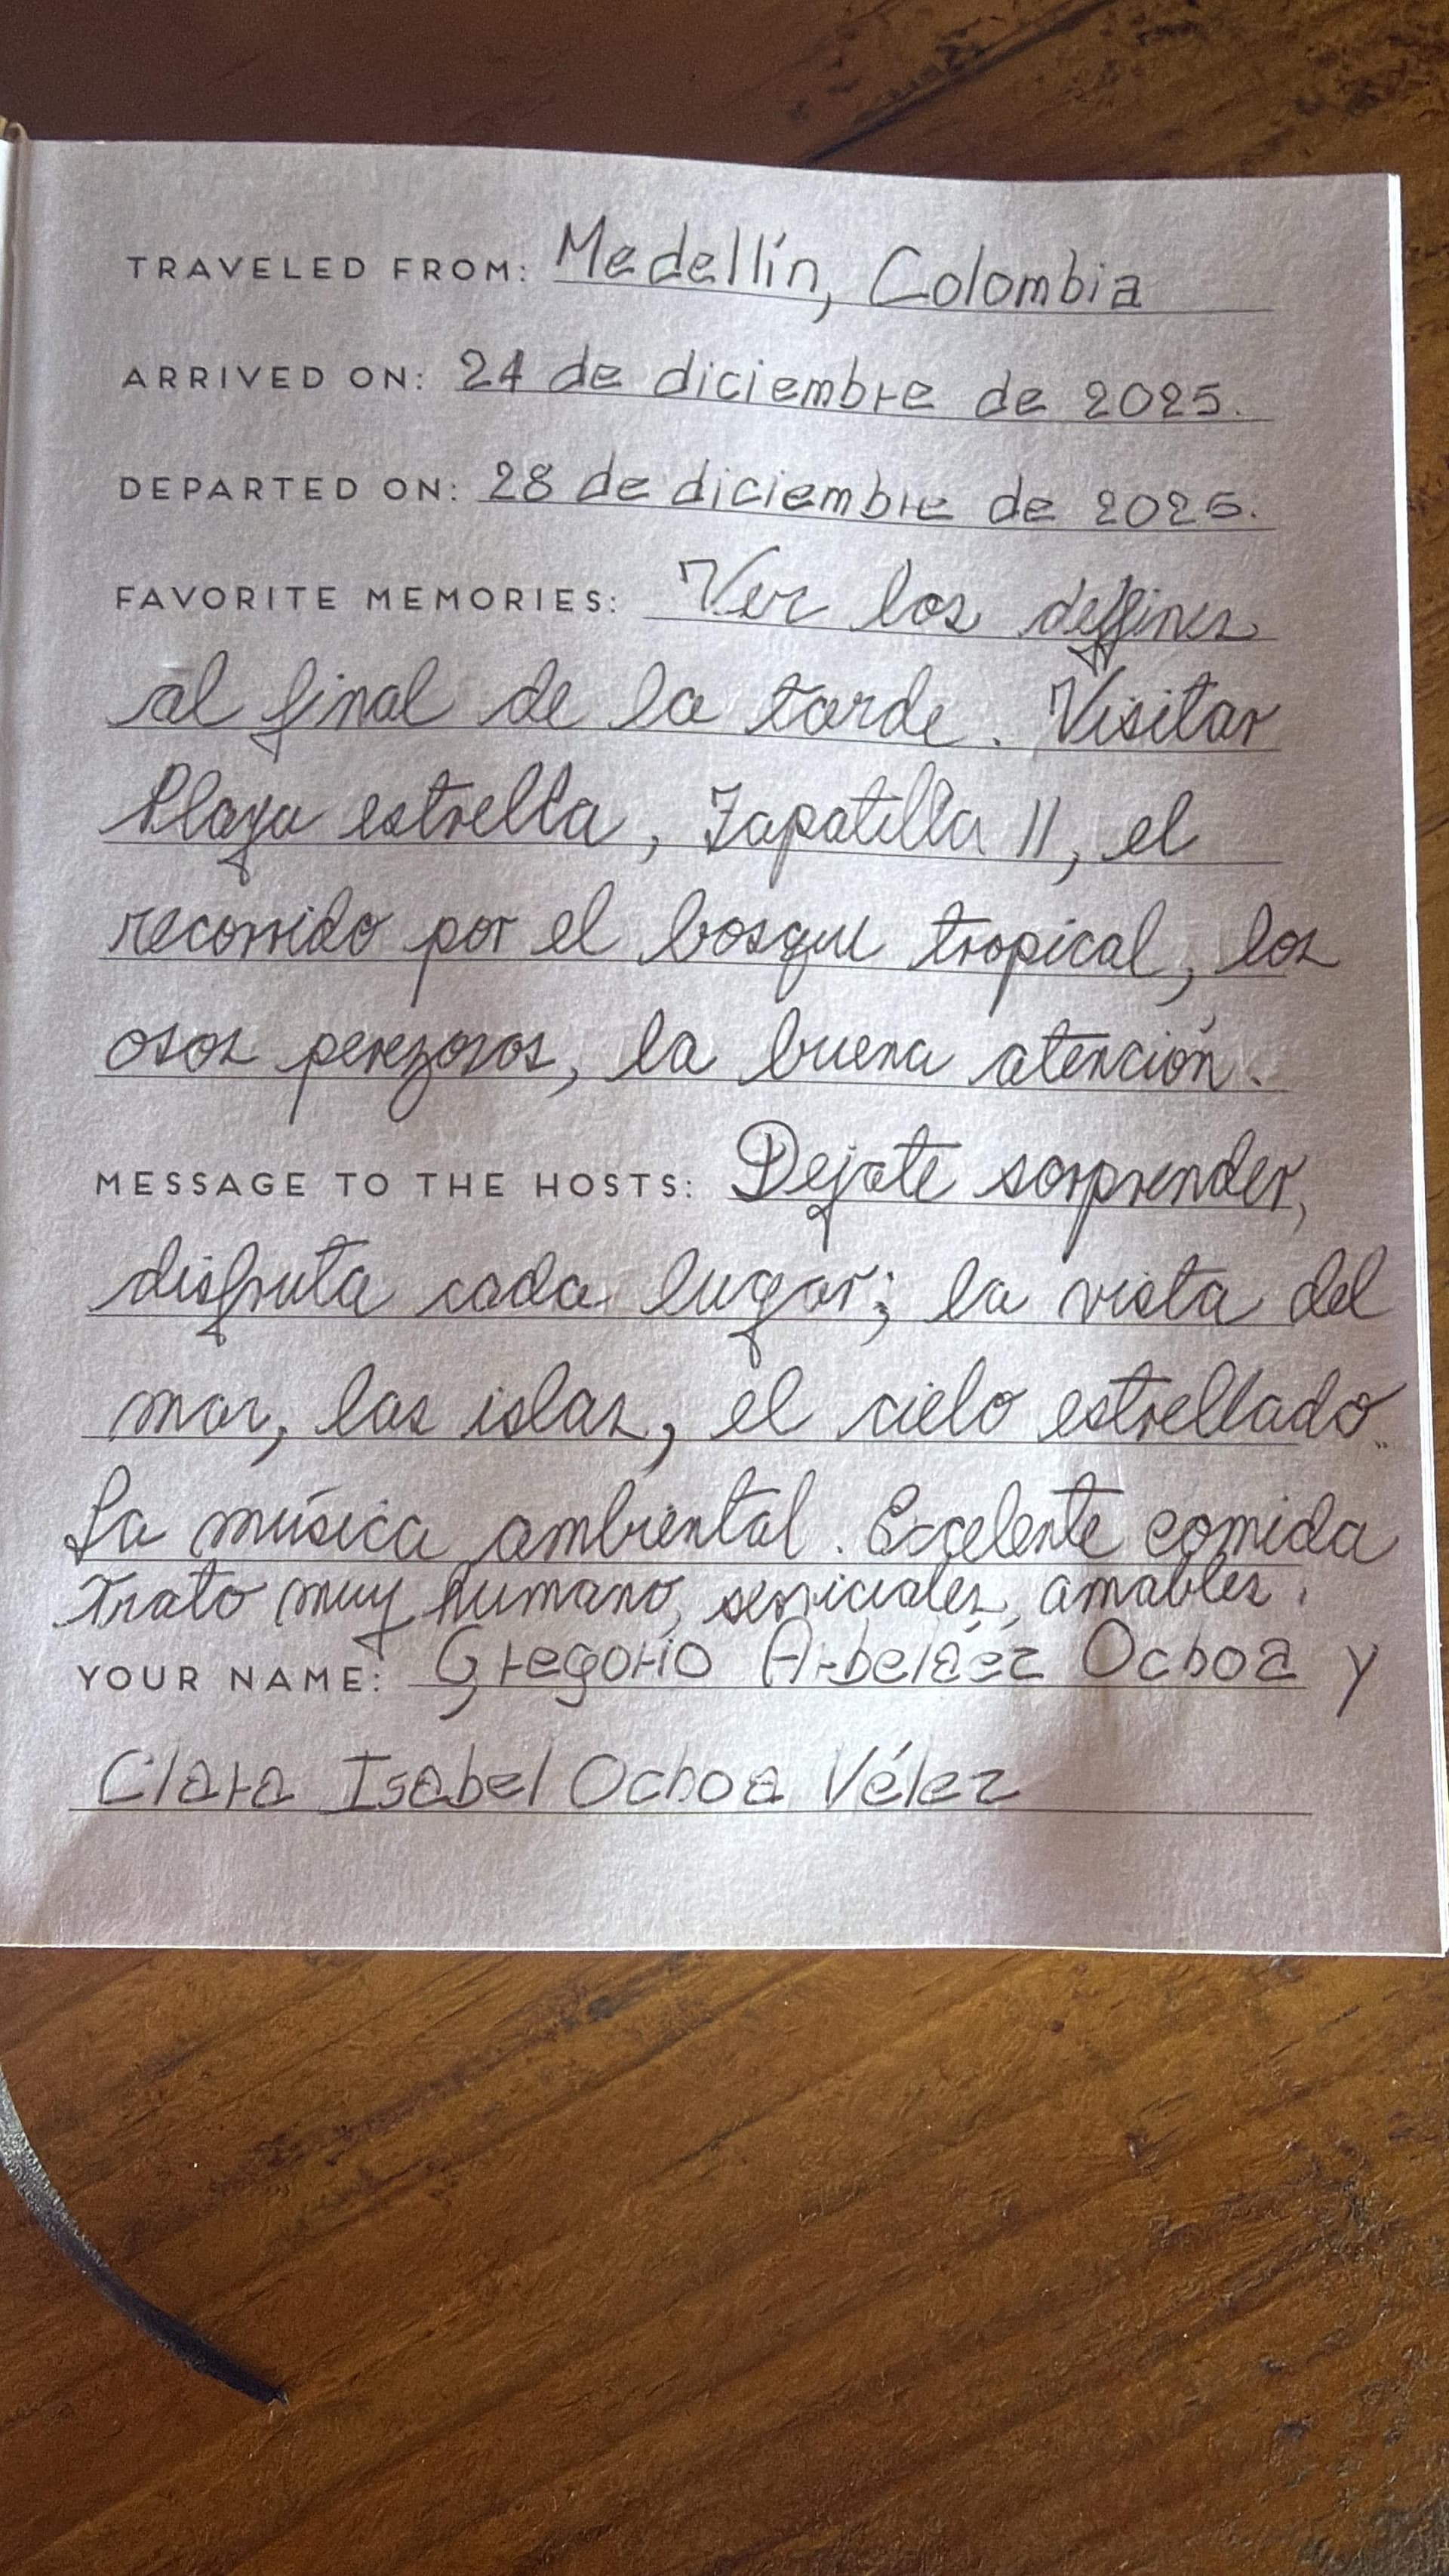 TRAVELED FROM: Medellín, Colombia
ARRIVED ON: 24 de diciembre de 2025.
DEPARTED ON: 28 de diciembre de 2025.
FAVORITE MEMORIES: Ver los delfines
al final de la tarde. Visitar
Playa estrella, Zapatilla II, el
recorrido por el bosque tropical, los
osos perezosos, la buena atención.
MESSAGE TO THE HOSTS: Dejate sorprender,
disfruta cada lugar; la vista del
mar, las islas, el cielo estrellado..
La música ambiental. Excelente comida
Trato muy humano, serviciales, amables.
YOUR NAME: Gregorio Arbeláez Ochoa y
Clara Isabel Ochoa Vélez